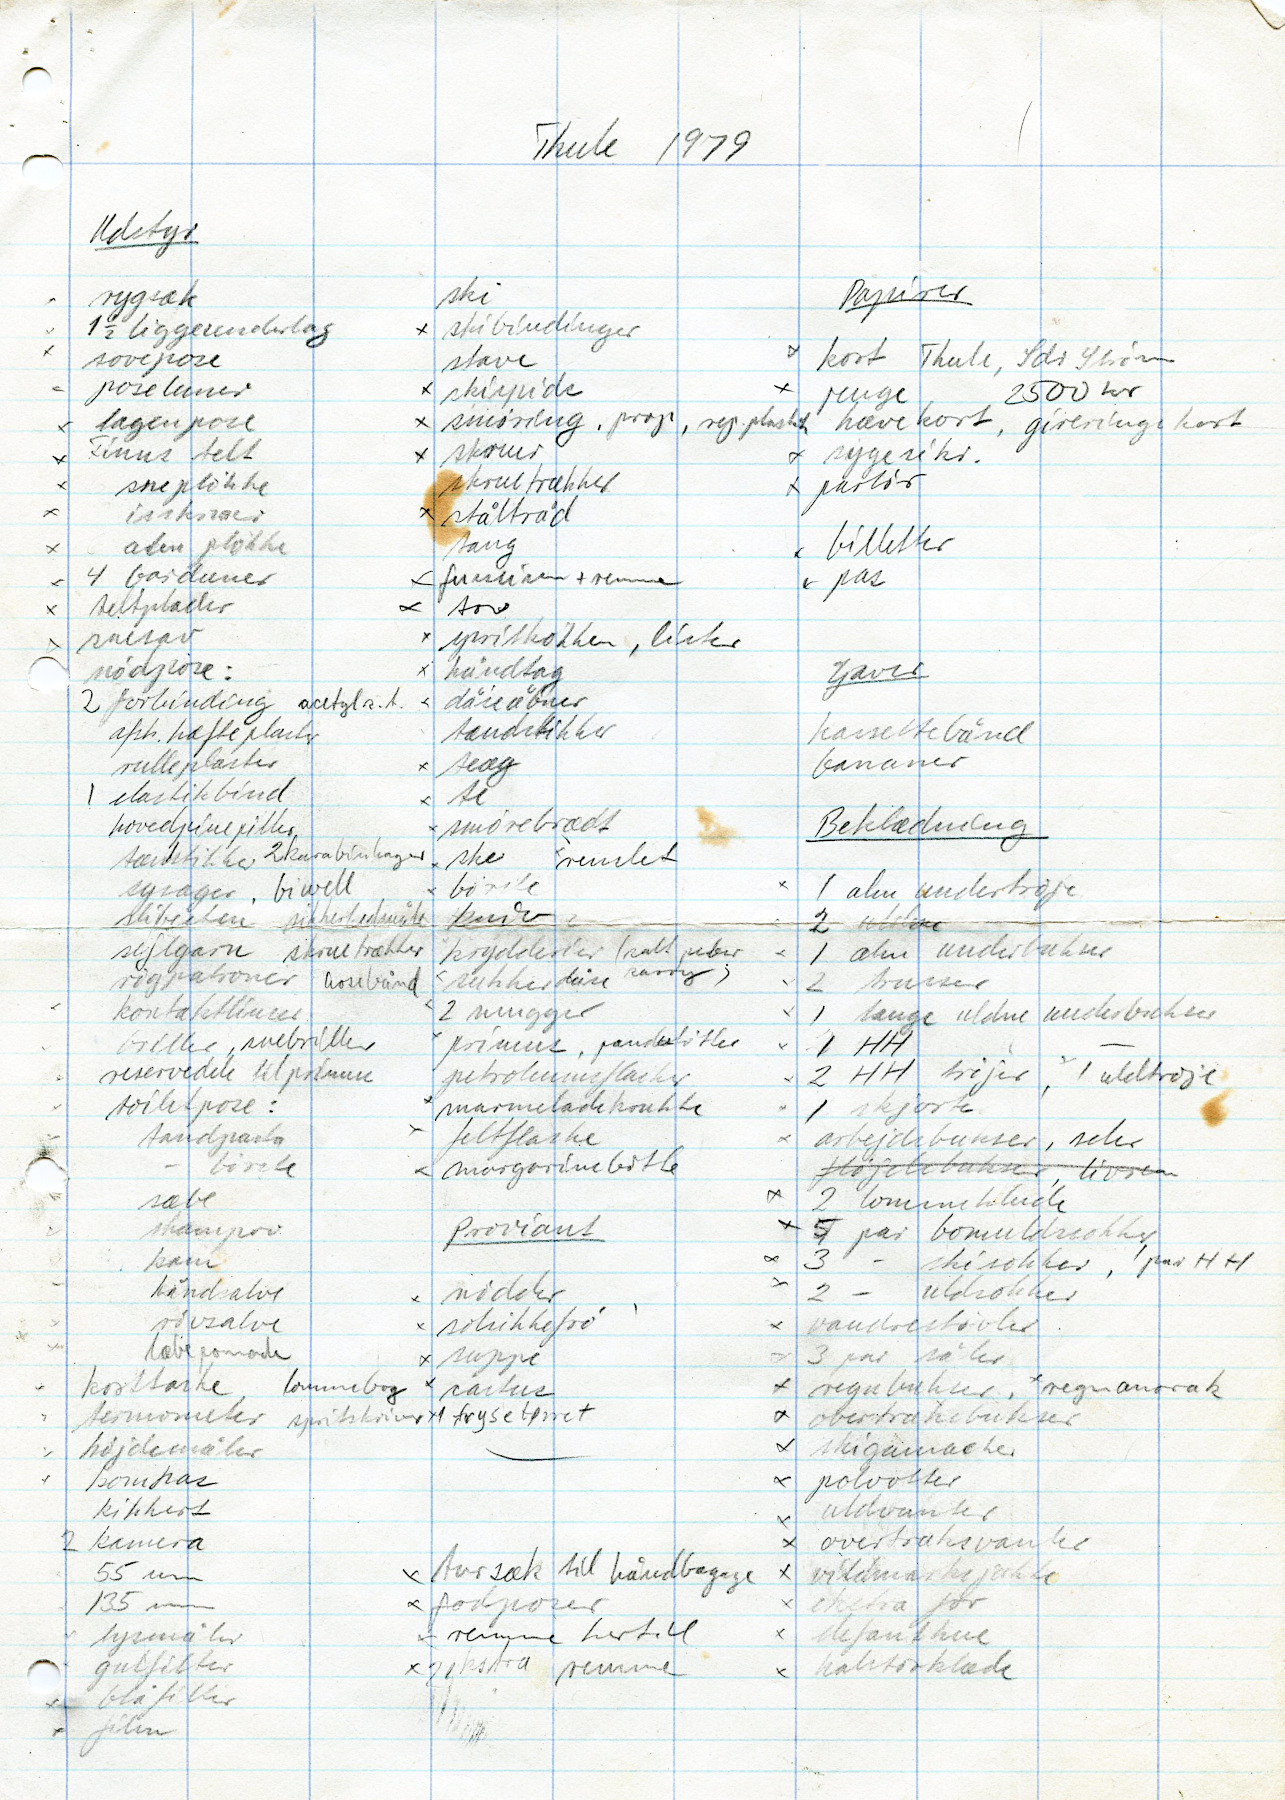 Thule 1979
Udstyr
rygsæk
1½ liggeunderlag
sovepose
poseluner
lagenpose
Finus telt
sneplökke
isskruer
alm plökke
4 barduner
teltplader
snesav
nödpose:
2 forbinding acetyls.t.
hæfteplaster
rulleplaster
1 elastikbind
hovedpinepiller
tændstikker 2 karabinhager
synåger, biwell
slibesten sikkerhedsnåle
sejlgarn skruetrækker
rygpatroner hosebånd
kontaktlinser
briller, snebriller
reservedele til primus
toiletpose:
tandpasta
- börste
sæbe
shampoo
kam
håndsalve
rövsalve
læbepomade
korttaske, lommebog
termometer spritskriver
höjdemåler
kompas
kikkert
2 kamera
55 mm
135 mm
lysmåler
gulfilter
blåfilter
film
ski
x skibindinger
stave
x skispids
x smöring, prop, rep.plastik
x skruer
skruetrækker
x ståltråd
tang
remme
x tov
x spritkokken, lister
x håndtag
dåseåbner
tændstikker
x teæg
x te
x smörebrædt
ske remlet
börste
kniv
krydderier (salt peber karry)
sukkerdåse
2 mugger
primus, pande
petroleumsflasker
marmeladekrukke
feltflaske
margarinebötte
Proviant
x nödder
x solsikkefrö
x suppe
x cactus
x 1 frysetörret
x tursæk til håndbagage
x fodposer
remme hertil
x 2 ekstra remme
Papirer
x kort Thule, Sdr Ström
x penge 2500 kr
hævekort, gireringskort
x sygesikr.
x parlör
x billetter
x pas
Gaver
kassettebånd
bananer
Beklædning
x 1 alm undertröje
2 uldne
1 alm underbukser
2 trusser
1 lange uldne underbukser
1 HH —
2 HH tröjer, x 1 uldtröje
1 skjorte
x arbejdsbukser, seler
flöjlsbukser, livrem
x 2 lommeklude
x 5 par bomuldssokker
x 3 - skisokker, 1 par HH
x 2 - uldsokker
x vandrestövler
3 par såler
x regnbukser, x regnanorak
x overtræksbukser
x skigamacher
x polvotter
x uldvanter
x overtræksvanter
x vildmarksjakke
x ekstra for
x elefanthue
x halstörklæde